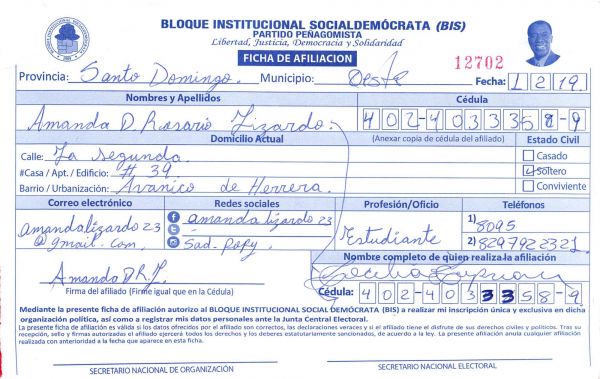 BLOQUE INSTITUCIONAL SOCIALDEMÓCRATA (BIS)
PARTIDO PEÑAGOMISTA
Libertad, Justicia, Democracia y Solidaridad
FICHA DE AFILIACION
12702
Provincia: Santo Domingo. Municipio: Oeste Fecha: 1 2 19.
Nombres y Apellidos Cédula
Amanda D. Rosario Lizardo. 402-4033358-9
Domicilio Actual (Anexar copia de cédula del afiliado) Estado Civil
Calle: La segunda. Casado
#Casa / Apt. / Edificio: # 39. Soltero
Barrio / Urbanización: Avanico de Herrera. Conviviente
Correo electrónico Redes sociales Profesión/Oficio Teléfonos
amandalizardo23 amandalizardo23 1) 8095
@gmail.com. Sad-popy Estudiante 2) 8297922321
Nombre completo de quien realiza la afiliación
Amanda DR.L
Firma del afiliado (Firme igual que en la Cédula) Cédula: 402-4033358-9
Mediante la presente ficha de afiliación autorizo al BLOQUE INSTITUCIONAL SOCIAL DEMÓCRATA (BIS) a realizar mi inscripción única y exclusiva en dicha
organización política, así como a registrar mis datos personales ante la Junta Central Electoral.
La presente ficha de afiliación es válida si los datos ofrecidos por el afiliado son correctos, las declaraciones veraces y si el afiliado tiene el disfrute de sus derechos civiles y políticos. Tras su
recepción, sello y firma autorizados el afiliado ejercerá todos los derechos y los deberes estatutariamente sancionados, de acuerdo a la ley. La presente afiliación anula cualquier afiliación
realizada con anterioridad a la fecha que aparece en esta ficha.
SECRETARIO NACIONAL DE ORGANIZACIÓN SECRETARIO NACIONAL ELECTORAL